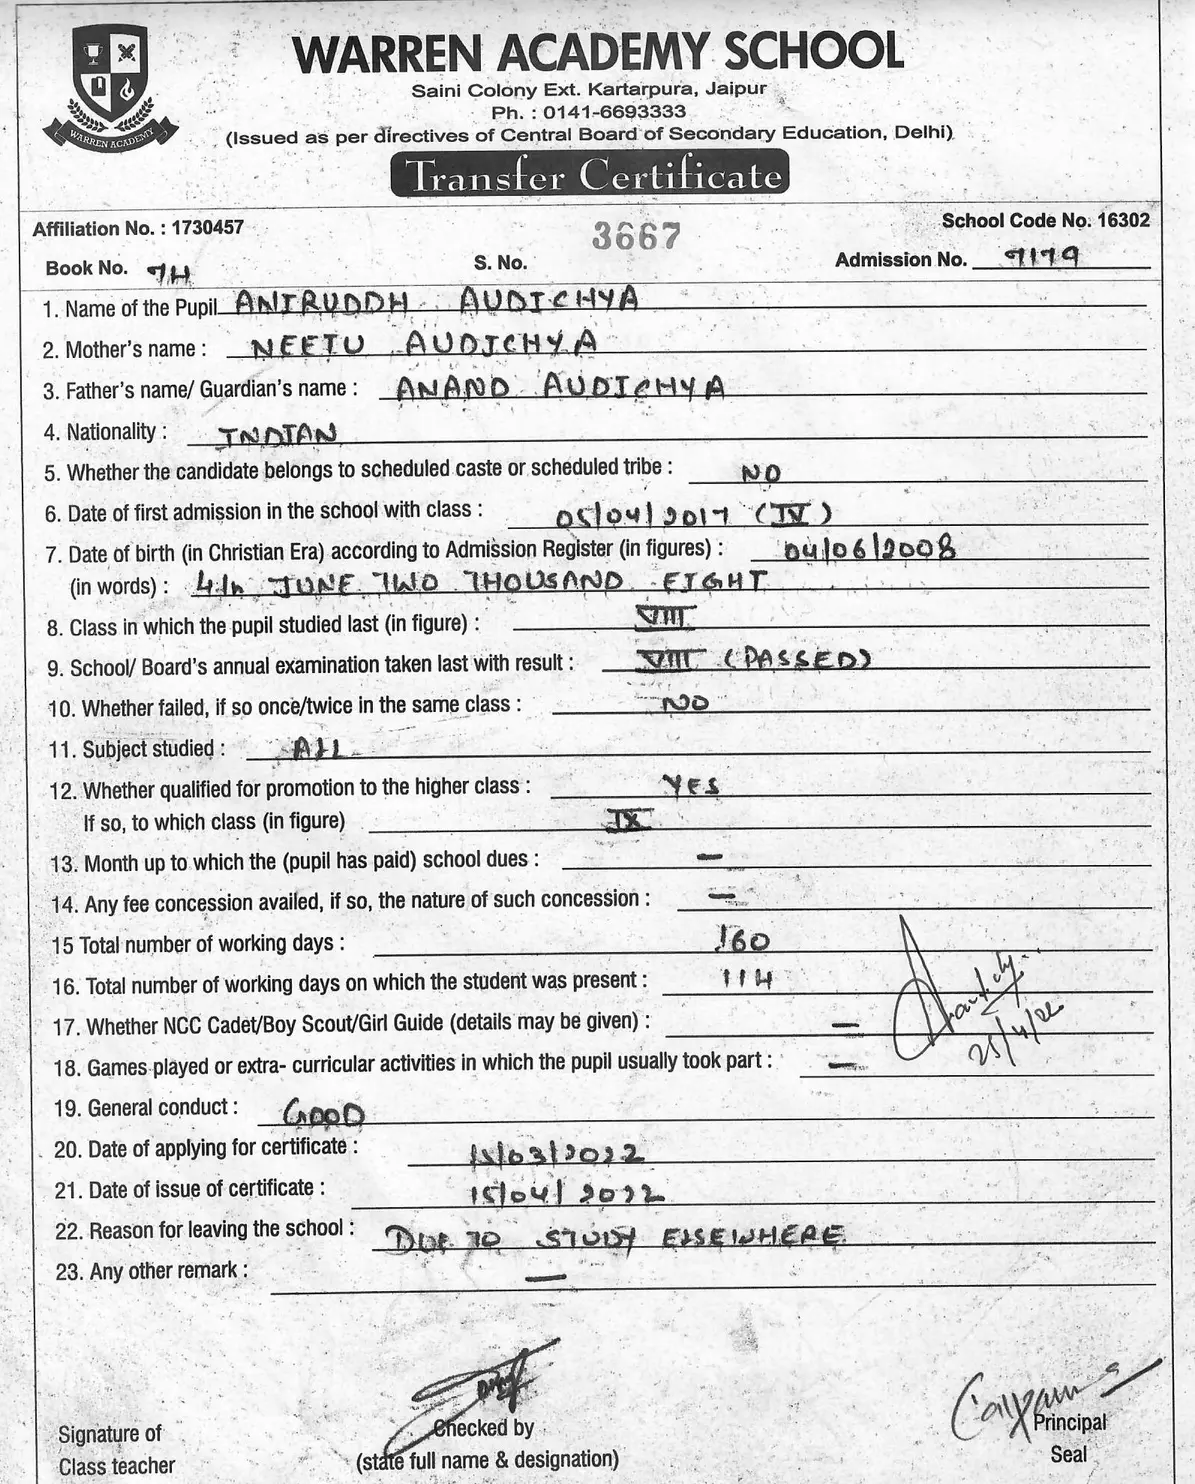 WARREN ACADEMY SCHOOL
Saini Colony Ext. Kartarpura, Jaipur
Ph. : 0141-6693333
(Issued as per directives of Central Board of Secondary Education, Delhi)
WARREN ACADEMY
Transfer Certificate
Affiliation No. : 1730457 3667 School Code No. 16302
Book No. 74 S. No. Admission No. 7179
1. Name of the Pupil ANIRUDDH AUDICHYA
2. Mother's name : NEETU AUDICHYA
3. Father's name/ Guardian's name : ANAND AUDICHYA
4. Nationality : INDIAN
5. Whether the candidate belongs to scheduled caste or scheduled tribe : NO
6. Date of first admission in the school with class : 05/04/2017 (IV)
7. Date of birth (in Christian Era) according to Admission Register (in figures) : 04/06/2008
(in words) : 4th JUNE TWO THOUSAND EIGHT
8. Class in which the pupil studied last (in figure) : VIII
9. School/ Board's annual examination taken last with result : VIII (PASSED)
10. Whether failed, if so once/twice in the same class : NO
11. Subject studied : ALL
12. Whether qualified for promotion to the higher class : YES
If so, to which class (in figure) IX
13. Month up to which the (pupil has paid) school dues : —
14. Any fee concession availed, if so, the nature of such concession : —
15 Total number of working days : 160
16. Total number of working days on which the student was present : 114
17. Whether NCC Cadet/Boy Scout/Girl Guide (details may be given) : —
25/4/22
18. Games played or extra- curricular activities in which the pupil usually took part : —
19. General conduct : GOOD
20. Date of applying for certificate : 15/03/2022
21. Date of issue of certificate : 15/04/2022
22. Reason for leaving the school : DUE TO STUDY ELSEWHERE
23. Any other remark : —
Signature of
Class teacher
Checked by
(state full name & designation)
Principal
Seal